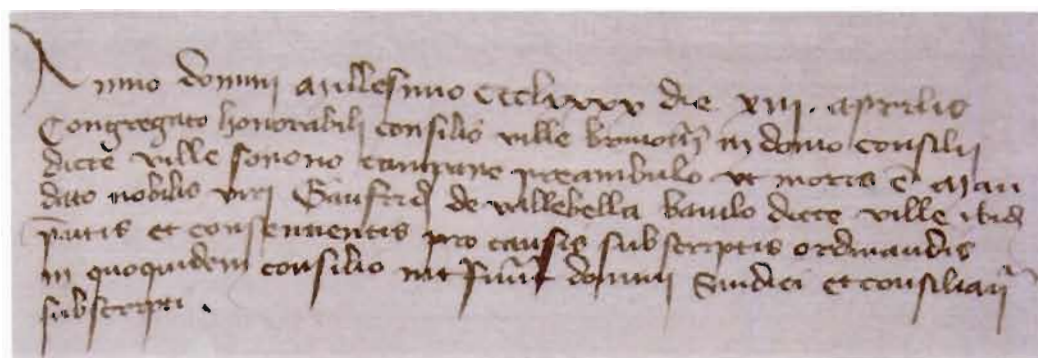 Anno domini millesimo cccclxxxv die xiii. aprilis
Congregato honorabili consilio ville in domo consilii
dicte ville sonono campane preambulo ut moris e man
dato nobilis viri Gaufred de vallebella bauilo dicte ville ibid
pntis et consencientis pro causis subscriptis ordinandis
in quoquidem consilio domini Sindici et consiliarii
subscripti.